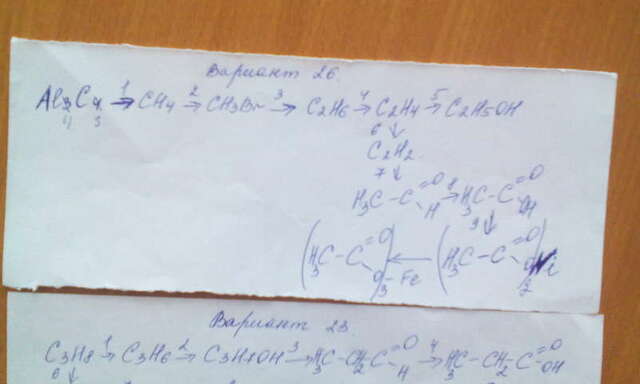 Вариант 26.
Al3C4 1→ CH4 2→ CH3Br 3→ C2H6 4→ C2H4 5→ C2H5OH
4 3
6 ↓
C2H2
7 ↓
H3C-C=O H 8→ H3C-C=O OH
9 ↓
(H3C-C=O O-)3 Fe ← (H3C-C=O O)2
Вариант 23.
C3H8 1→ C3H6 2→ C3H7OH 3→ H3C-CH2-C=O H 4→ H3C-CH2-C=O OH
6 ↓